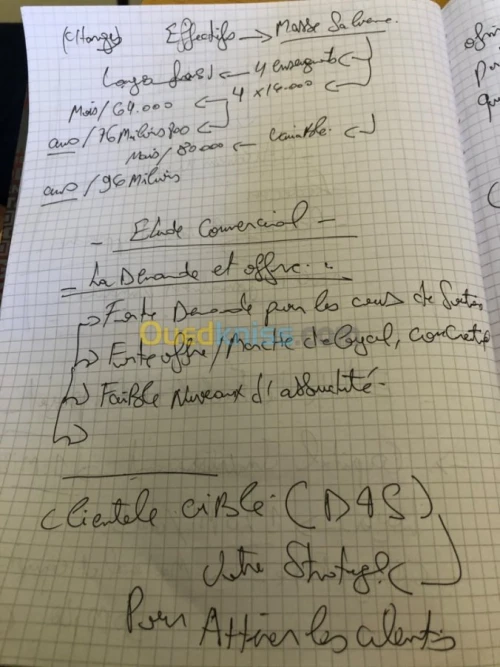 (Charges) Effectifs → Masse Salariale.
← 4 enseignants
Mois / 64.000 4 ×
ans / 76 Millions 800
Mois / 80000 ← Comptable.
ans / 96 Millions
- Etude Commercial -
- La Demande et offre.
Forte Demande pour les cours de Soutien
Forte offre / Marché déloyal,
Faible Niveaux d'assiduité -
Clientele ciBle. (DAS)
Votre Strategie
Pour Attirer les clients
Ouedkniss.com